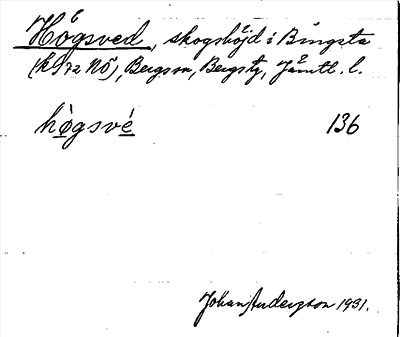 Högsved, skogshöjd i Bingsta
(k 972 NÖ), Bergs sn, Bergs tg, Jämtl. l.
högsvé 136
Johan Anderzson 1931.